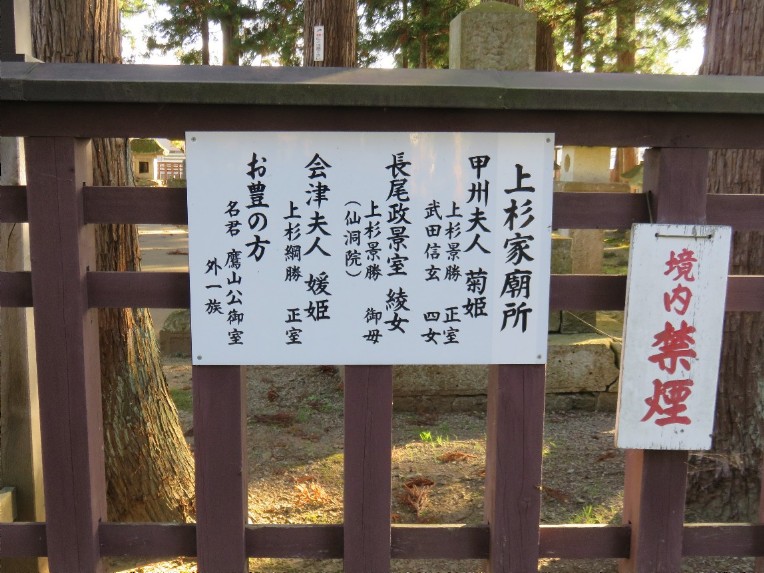 上杉家廟所
甲州夫人 菊姫
上杉景勝 正室
武田信玄 四女
長尾政景室 綾女
上杉景勝 御母
(仙洞院)
会津夫人 媛姫
上杉綱勝 正室
お豊の方
名君 鷹山公御室
外一族
境内禁煙